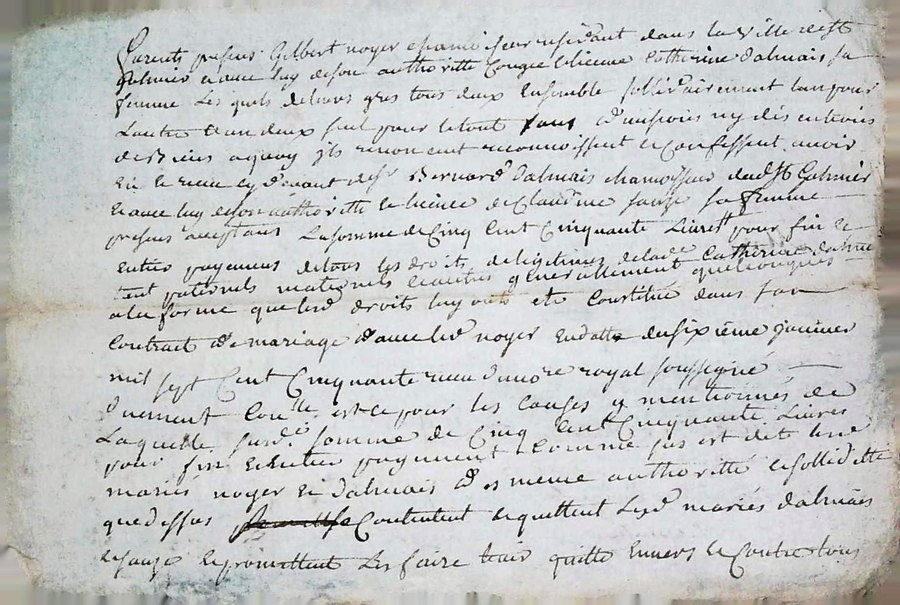 furents presens Gilbert noyer chamoiseur residant dans la ville de st
galmier et avec luy de son authoritté Congée et licence Catherine dalmais sa
femme Les quels de leurs gres tous deux Ensemble sollidairement lun pour
Lautre et un deux seul pour le tout sans division ny discution
de Biens a quoy jls renoncent reconnoissent et confessent avoir
Eu et receu cy devant de sr Bernard dalmais chamoiseur dudt St Galmier
et avec luy de son authoritté et licence de Claudine sauze sa femme
presens acceptans La somme de Cinq Cent Cinquante Livres pour fin et
Entier payement de tous les droits de legitime de lade Catherine dalmais
tent paternels maternels et autres generallement quelconques
a la forme que lesd droits luy ont eté Constitué dans son
Contract de mariage avec led noyer En datte du sixième janvier
mil sept Cent Cinquante receu dud nore royal soussigné
duement Conllé est ce pour les Causes y mentionnés de
Laquelle susde somme de Cinq Cent Cinquante Livres
pour fin et Entier payement Comme sus est dit Lesd
mariés noyer et dalmais de meme authoritté et sollidité
que dessus Contentent et quittent Lesd mariés dalmais
et sauze et promettent Les faire tenir quitte Envers et Contre tous